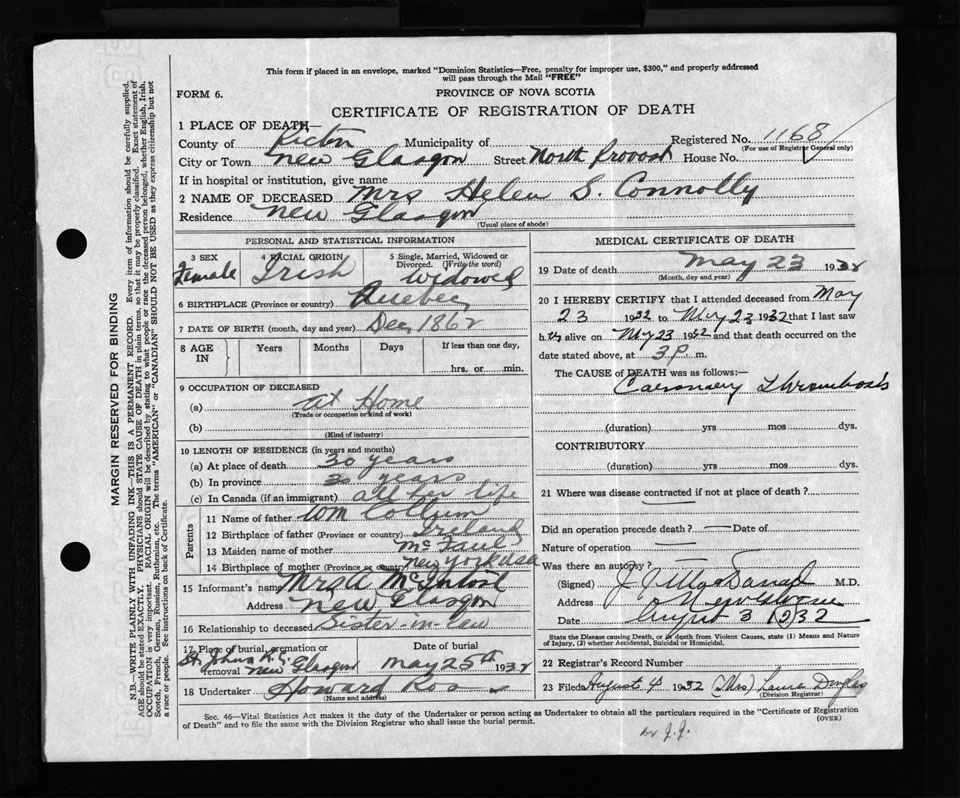 This form if placed in an envelope, marked "Dominion Statistics—Free, penalty for improper use, $300," and properly addressed
will pass through the Mail "FREE"
FORM 6.
PROVINCE OF NOVA SCOTIA
CERTIFICATE OF REGISTRATION OF DEATH
1 PLACE OF DEATH—
County of Pictou Municipality of Registered No. 1168
(For use of Registrar General only)
City or Town New Glasgow Street North Provost House No.
If in hospital or institution, give name
2 NAME OF DECEASED Mrs Helen S. Connolly
Residence New Glasgow
(Usual place of abode)
PERSONAL AND STATISTICAL INFORMATION
3 SEX Female
4 RACIAL ORIGIN Irish
5 Single, Married, Widowed or Divorced. (Write the word) Widowed
6 BIRTHPLACE (Province or country) Quebec
7 DATE OF BIRTH (month, day and year) Dec 1862
8 AGE IN Years Months Days If less than one day, hrs. or min.
9 OCCUPATION OF DECEASED
(a) At Home
(Trade or occupation or kind of work)
(b)
(Kind of industry)
10 LENGTH OF RESIDENCE (in years and months)
(a) At place of death 30 years
(b) In province 30 years
(c) In Canada (if an immigrant) all her life
Parents
11 Name of father Wm Collum
12 Birthplace of father (Province or country) Ireland
13 Maiden name of mother
14 Birthplace of mother (Province or country) New York USA
15 Informant's name Mrs A McIntosh
Address New Glasgow
16 Relationship to deceased Sister-in-law
17 Place of burial, cremation or removal St. Johns R.C. New Glasgow
Date of burial May 25th 1932
18 Undertaker Howard
(Name and address)
MEDICAL CERTIFICATE OF DEATH
19 Date of death May 23 1932
(Month, day and year)
20 I HEREBY CERTIFY that I attended deceased from May
23 1932 to May 23 1932 that I last saw
h er alive on May 23 1932 and that death occurred on the
date stated above, at 3 P. m.
The CAUSE of DEATH was as follows:—
Coronary Thrombosis
(duration) yrs mos dys.
CONTRIBUTORY
(duration) yrs mos dys.
21 Where was disease contracted if not at place of death?
Did an operation precede death? — Date of
Nature of operation —
Was there an autopsy?
(Signed) M.D.
Address New Glasgow
Date August 3 1932
State the Disease causing Death, or in death from Violent Causes, state (1) Means and Nature
of Injury, (2) whether Accidental, Suicidal or Homicidal.
22 Registrar's Record Number
23 Filed August 4 1932 (Mrs) Laura Douglas
(Division Registrar)
(OVER)
Sec. 46—Vital Statistics Act makes it the duty of the Undertaker or person acting as Undertaker to obtain all the particulars required in the "Certificate of Registration
of Death" and to file the same with the Division Registrar who shall issue the burial permit.
MARGIN RESERVED FOR BINDING
N.B.—WRITE PLAINLY WITH UNFADING INK—THIS IS A PERMANENT RECORD. Every item of information should be carefully supplied.
AGE should be stated EXACTLY. PHYSICIANS should STATE CAUSE OF DEATH in plain terms, so that it may be properly classified. Exact statement of
OCCUPATION is very important. RACIAL ORIGIN will be described by stating to what people or race the deceased person belonged, whether English, Irish,
Scotch, French, German, Russian, Ruthenian, etc. The terms "AMERICAN" or "CANADIAN" SHOULD NOT BE USED as they express citizenship but not
a race or people. See instructions on back of Certificate.